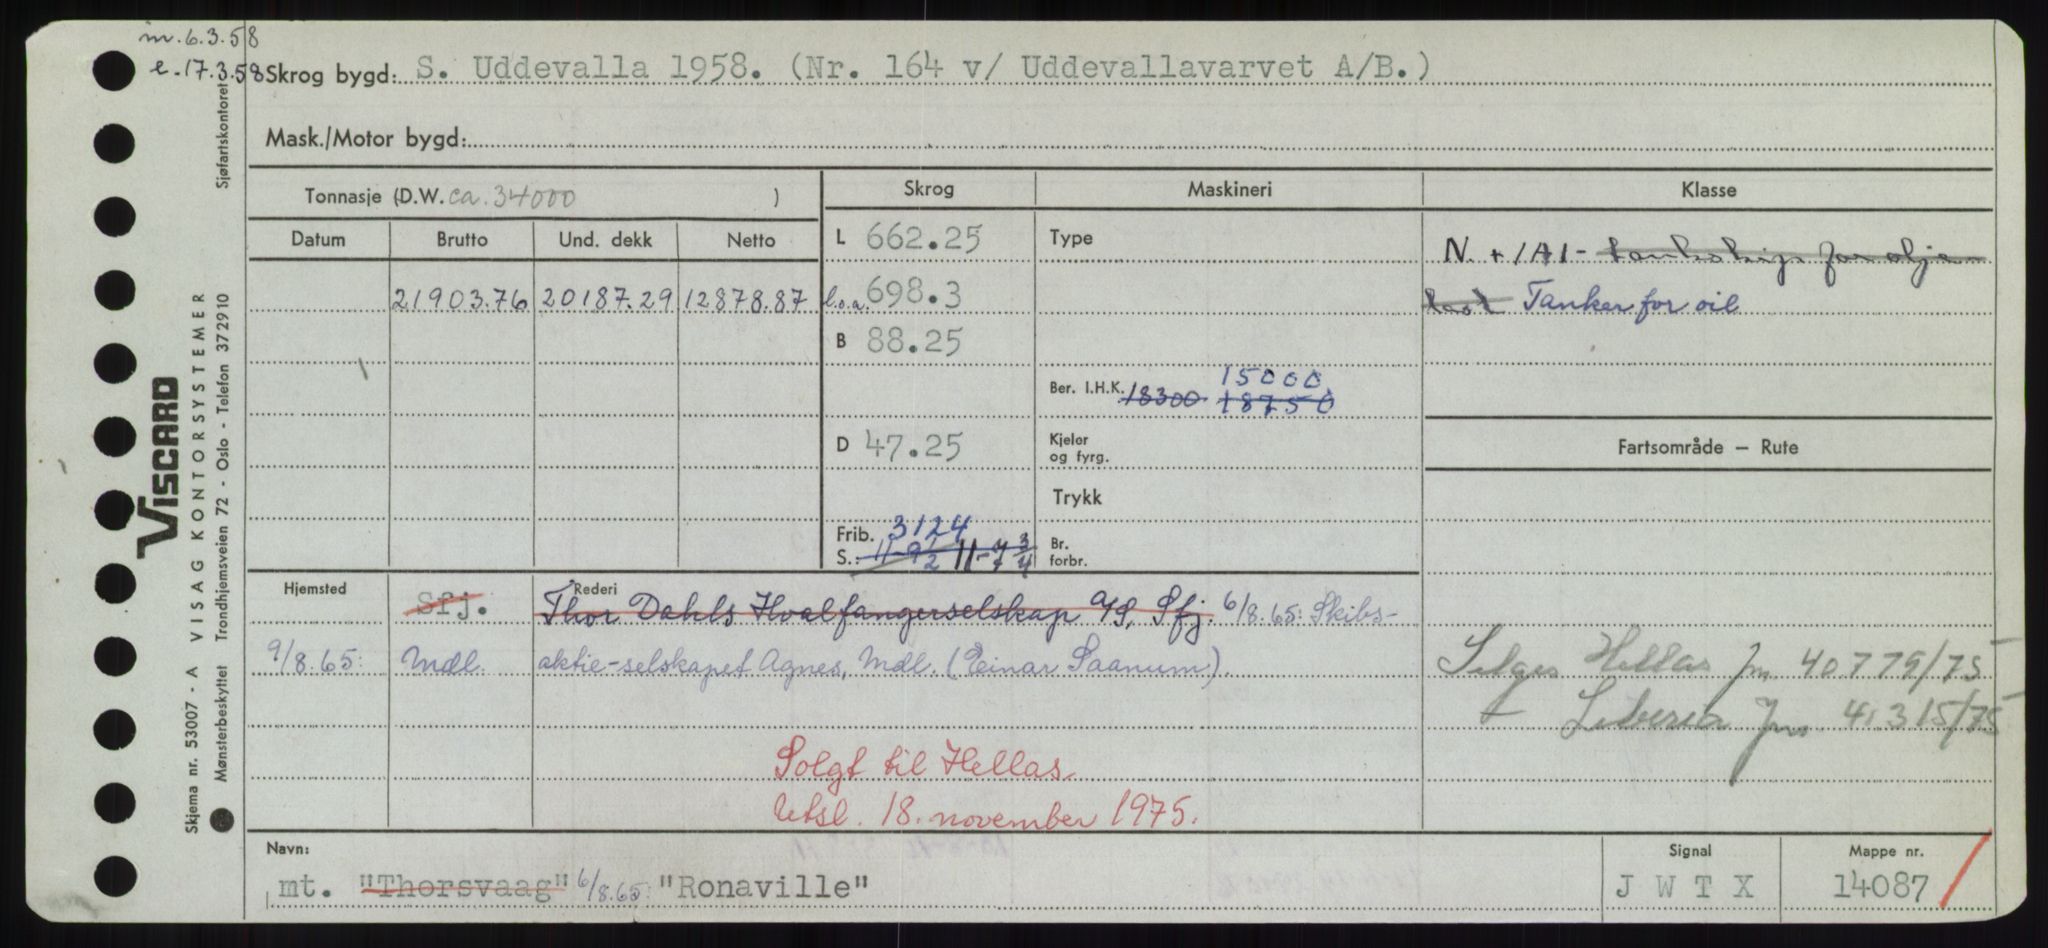 m. 6.3.58
e. 17.3.58
Skrog bygd: S. Uddevalla 1958. (Nr. 164 v/ Uddevallavarvet A/B.)
Mask./Motor bygd:
Tonnasje (D.W. ca. 34000 )
Skrog
Maskineri
Klasse
Datum Brutto Und. dekk Netto
L 662.25
Type
N. + 1A1 - tankskip for olje-
21903.76 20187.29 12878.87
l.o.a. 698.3
last Tanker for oil
B 88.25
15000
Ber. I.H.K. 18300 18750
D 47.25
Kjeler
og fyrg.
Fartsområde — Rute
Trykk
Frib. 3124
S.: 11-9 1/2 11-7 3/4
Br.
forbr.
Hjemsted
Rederi
Sfj. Thor Dahls Hvalfangerselskap A/S, Sfj. 6/8.65: Skibs-
9/8.65: Mdl. aktie-selskapet Agnes, Mdl. (Einar Saanum).
Selges Hellas jnr 40779/75
Liberia jnr 41315/75
Solgt til Hellas
Utsl. 18. november 1975.
Navn:
mt. "Thorsvaag" 6/8.65: "Ronaville"
Signal
J W T X
Mappe nr.
14087
VISCARD
Skjema nr. 53007 - A VISAG KONTORSYSTEMER
Mønsterbeskyttet Trondhjemsveien 72 - Oslo - Telefon 372910
Sjøfartskontoret